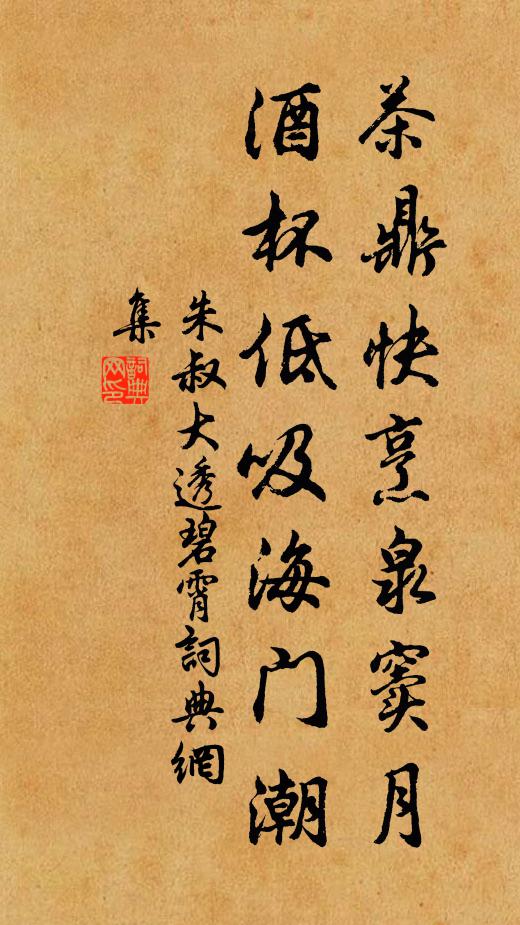 茶鼎快烹泉窦月
酒杯低吸海门潮
朱叔大透碧霄詞典網
集
詞典
网印